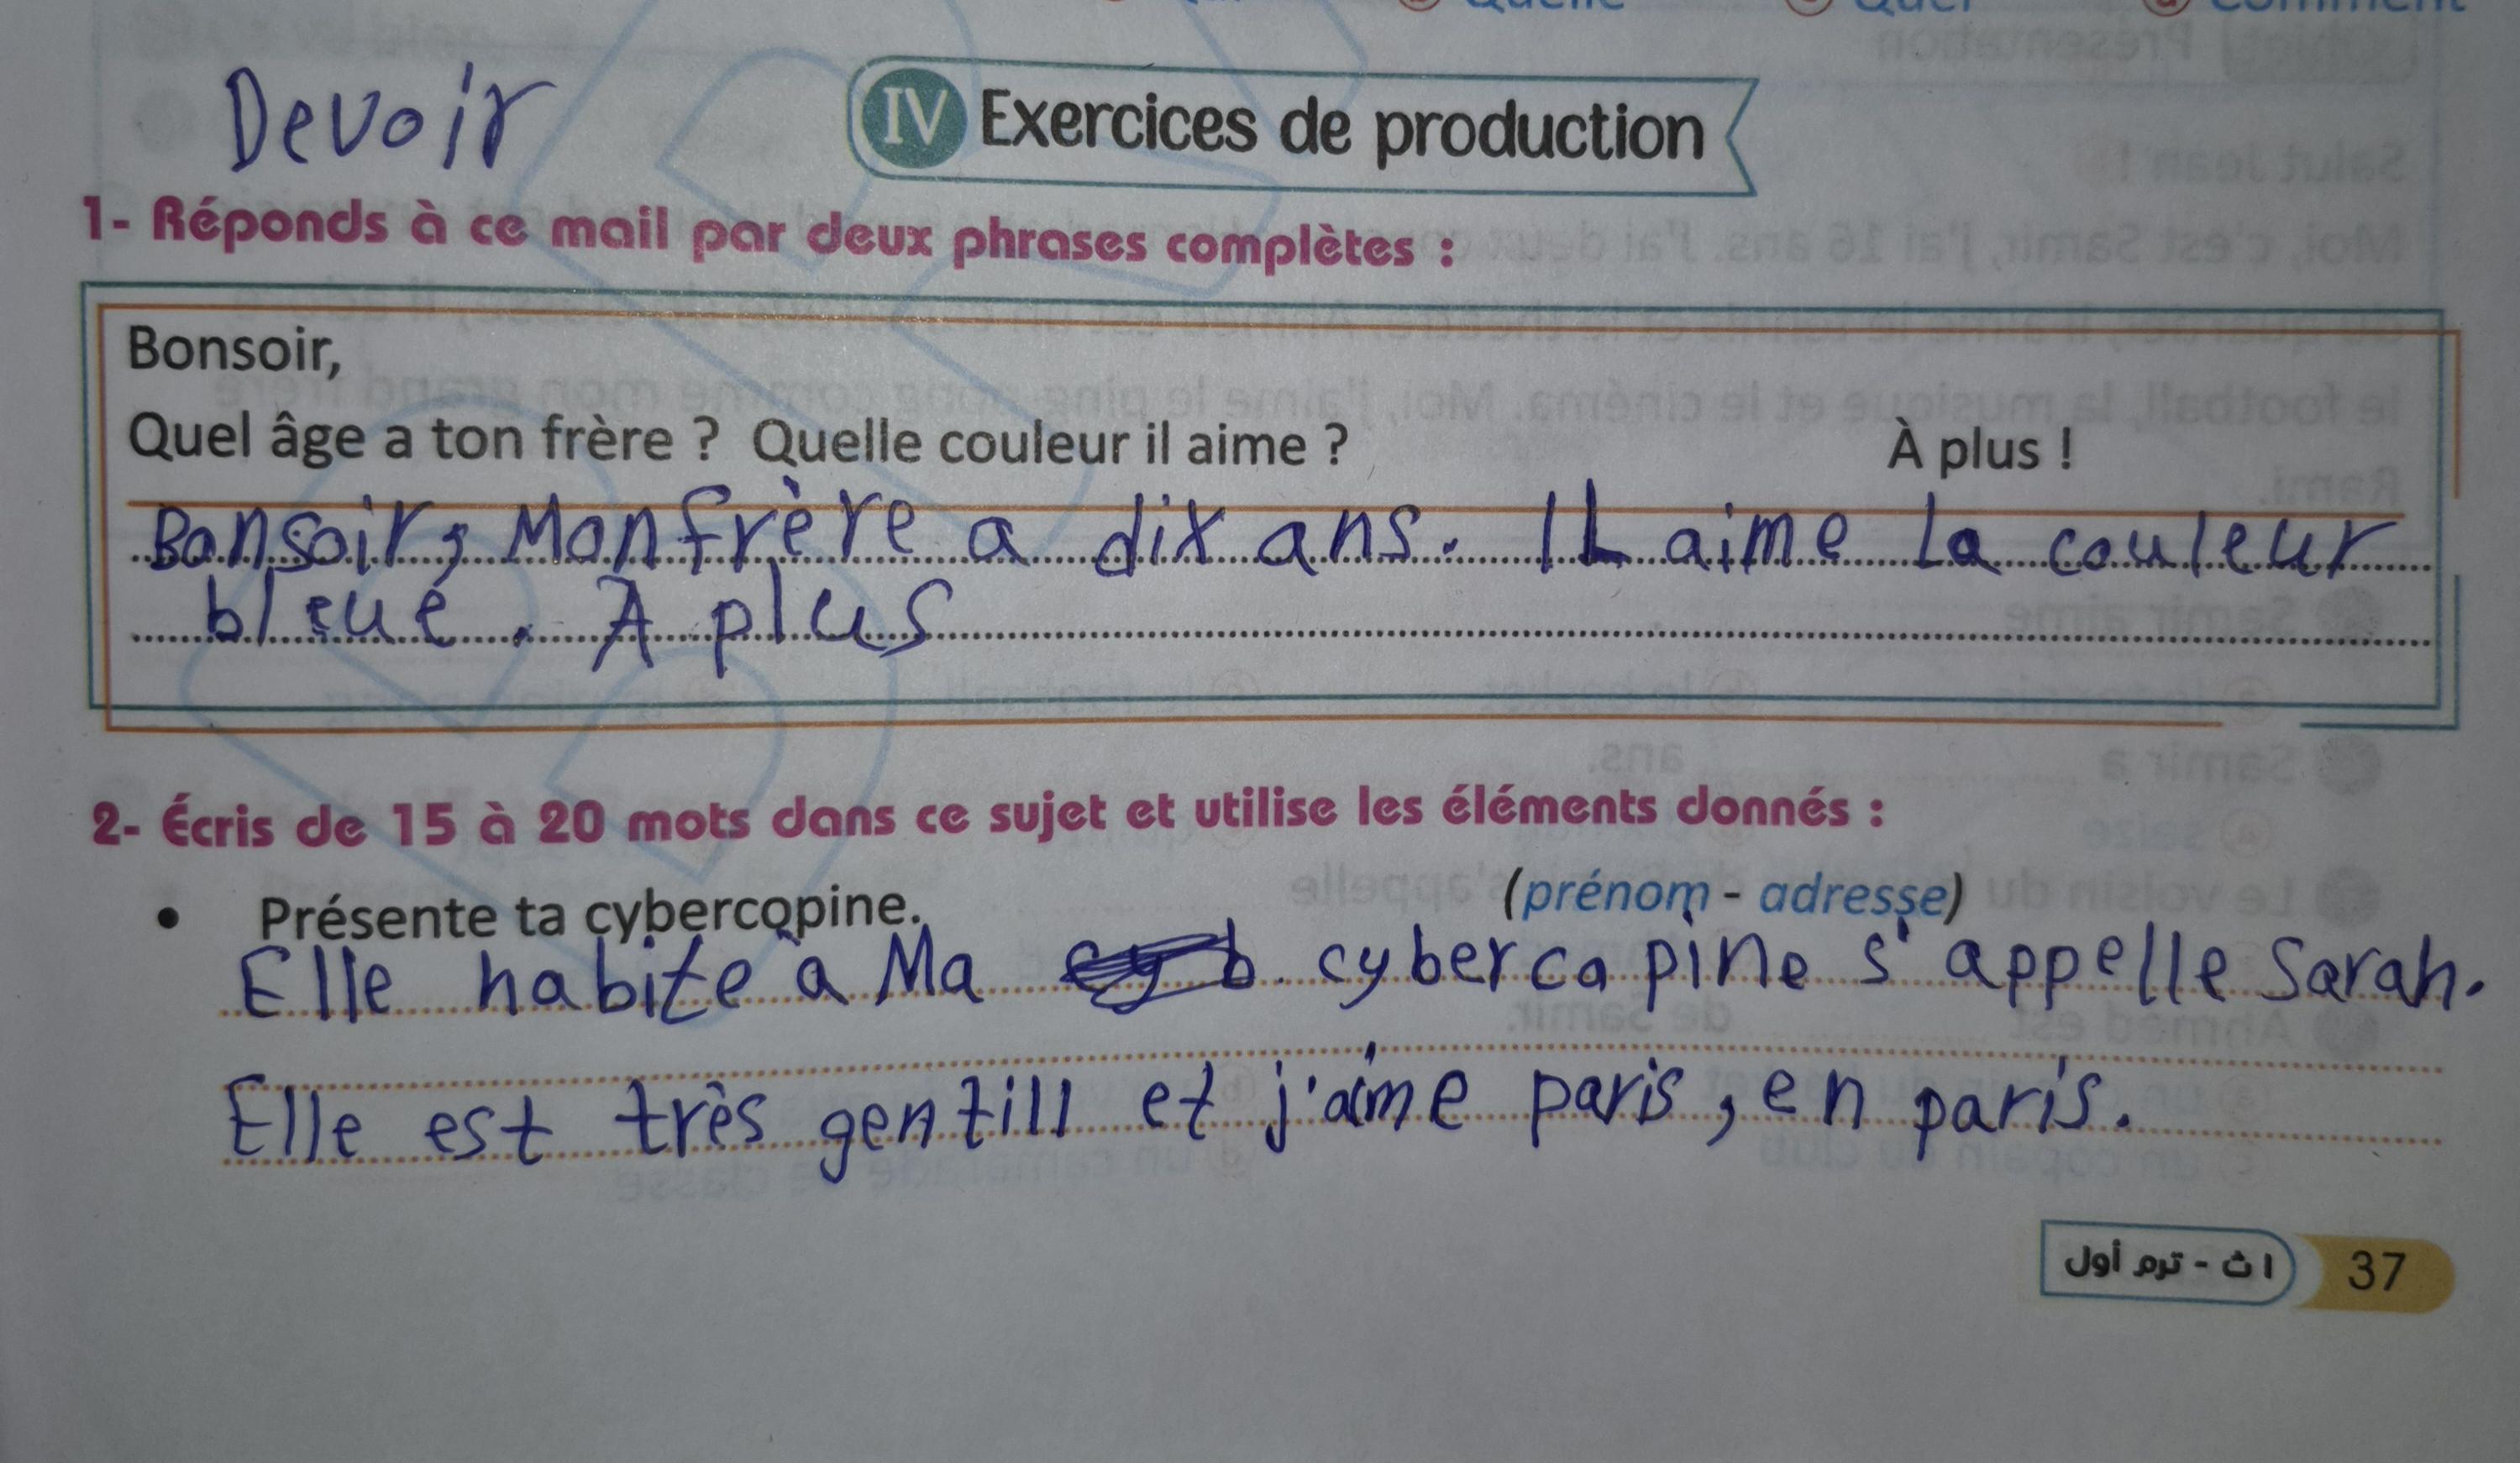 Quelle Quel Comment
Devoir
IV Exercices de production
1- Réponds à ce mail par deux phrases complètes :
Bonsoir,
Quel âge a ton frère ? Quelle couleur il aime ? À plus !
Bonsoir, Mon frère a dix ans. IL aime La couleur
bleue. A plus
2- Écris de 15 à 20 mots dans ce sujet et utilise les éléments donnés :
• Présente ta cybercopine. (prénom - adresse)
Elle habite à Ma cybercopine s'appelle Sarah.
Elle est très gentill et j'aime paris, en paris.
١ ث - ترم أول 37